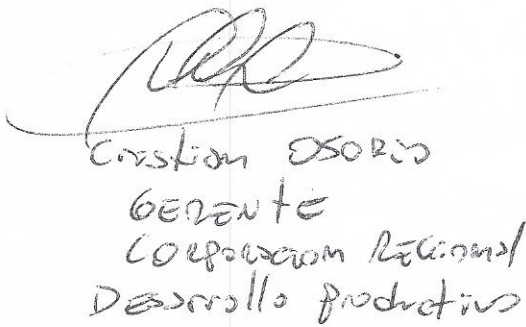 Cristian OSORIO
GERENTE
CORPORACION REGIONAL
DESARROLLO Productivo